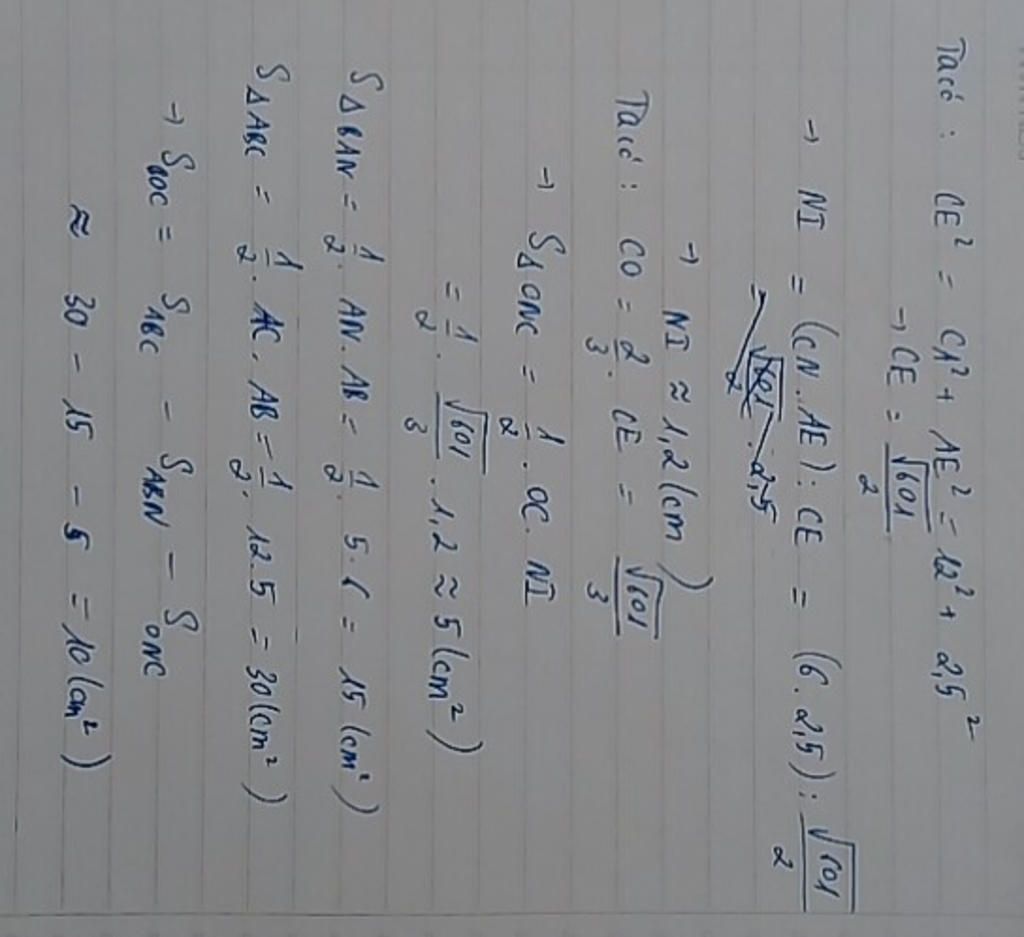 Ta có : CE² = CA² + AE² = 12² + 2,5²
→ CE = √601/2
→ NI = (CN . AE) : CE = (6 . 2,5) : √601/2
= √601/2 . 2,5
→ NI ≈ 1,2 (cm)
Ta có : CO = 2/3 . CE = √601/3
→ SΔONC = 1/2 . OC . NI
= 1/2 . √601/3 . 1,2 ≈ 5 (cm²)
SΔBAN = 1/2 . AN . AB = 1/2 . 5 . 6 = 15 (cm²)
SΔABC = 1/2 . AC . AB = 1/2 . 12 . 5 = 30 (cm²)
→ S BOC = S ABC - S ABN - S ONC
≈ 30 - 15 - 5 = 10 (cm²)